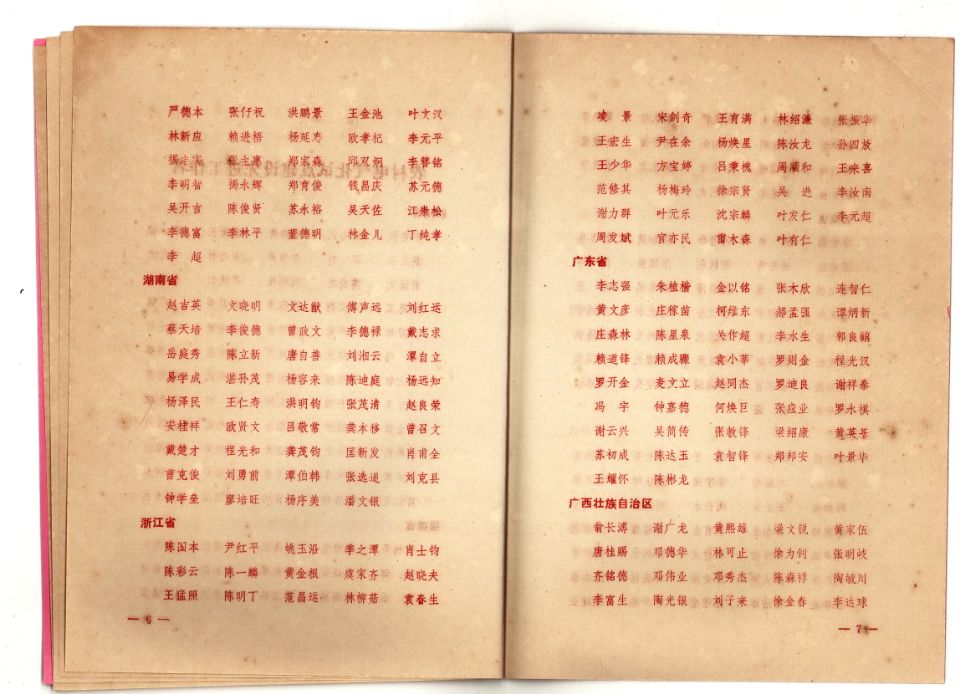 严德本 张仔祝 洪鹏景 王金池 叶文汉
林新应 赖进梧 杨延寿 欧孝杞 李元平
张主惠 郑家森 邱双炯 李磐铭
李明智 揭永辉 郑育俊 钱昌庆 苏元德
吴开吉 陈俊贤 苏永裕 吴天佐 江崇松
李德富 李林平 董德明 林金儿 丁纯孝
李 超
湖南省
赵吉英 文晓明 文达猷 傅声远 刘红运
蔡天培 李俊德 曾政文 李德禄 戴志求
岳庭秀 陈立新 唐自善 刘湘云 潭自立
易学成 湛孙茂 杨容来 陈迪庭 杨远知
杨泽民 王仁寿 洪明钧 张茂清 赵良荣
安桂祥 欧贤文 吕敬常 龚本移 曾召文
戴楚才 程光和 龚茂钧 匡新发 肖甫全
曹克俊 刘勇前 潭伯韩 张选道 刘克县
钟学奎 廖培旺 杨序美 潘文银
浙江省
陈国本 尹红平 姚玉沿 季之潭 肖士钧
陈彩云 陈一麟 黄金根 虞家齐 赵晓夫
王猛照 陈明丁 范昌运 林柳菇 袁春生
— 6 —
凌 景 宋剑奇 王育满 林绍濂 张振华
王宏生 尹在余 杨焕星 陈汝龙 孙四放
王少华 方宝婷 吕秉槐 周顺和 王宗喜
范修其 杨梅玲 徐宗贤 吴 进 李汝南
谢力群 叶元乐 沈宗麟 叶发仁 李元超
周发斌 宫亦民 雷木森 叶有仁
广东省
李志强 朱植楷 金以铭 张木欣 连智仁
黄文彦 庄稼苗 柯维东 郝孟强 谭炳新
庄森林 陈星泉 关作超 李水生 郭良禧
赖道锋 赖成骤 袁小莘 罗则金 程光汉
罗开金 麦文立 赵同杰 罗迪良 谢祥泰
冯 宇 钟嘉德 何焕巨 张应业 罗永祺
谢云兴 吴简传 张教锋 梁绍康 黄英荃
苏初成 陈达玉 袁智锋 郑邦安 叶景华
王耀怀 陈彬龙
广西壮族自治区
翁长溥 谢广龙 黄熙雄 梁文锐 黄家伍
唐桂赐 邓德华 林可止 徐为钊 张明岐
齐铭德 邓伟业 邓秀杰 陈森祥 陶铍川
李富生 陶光银 刘子来 徐金春 李达球
— 7 —